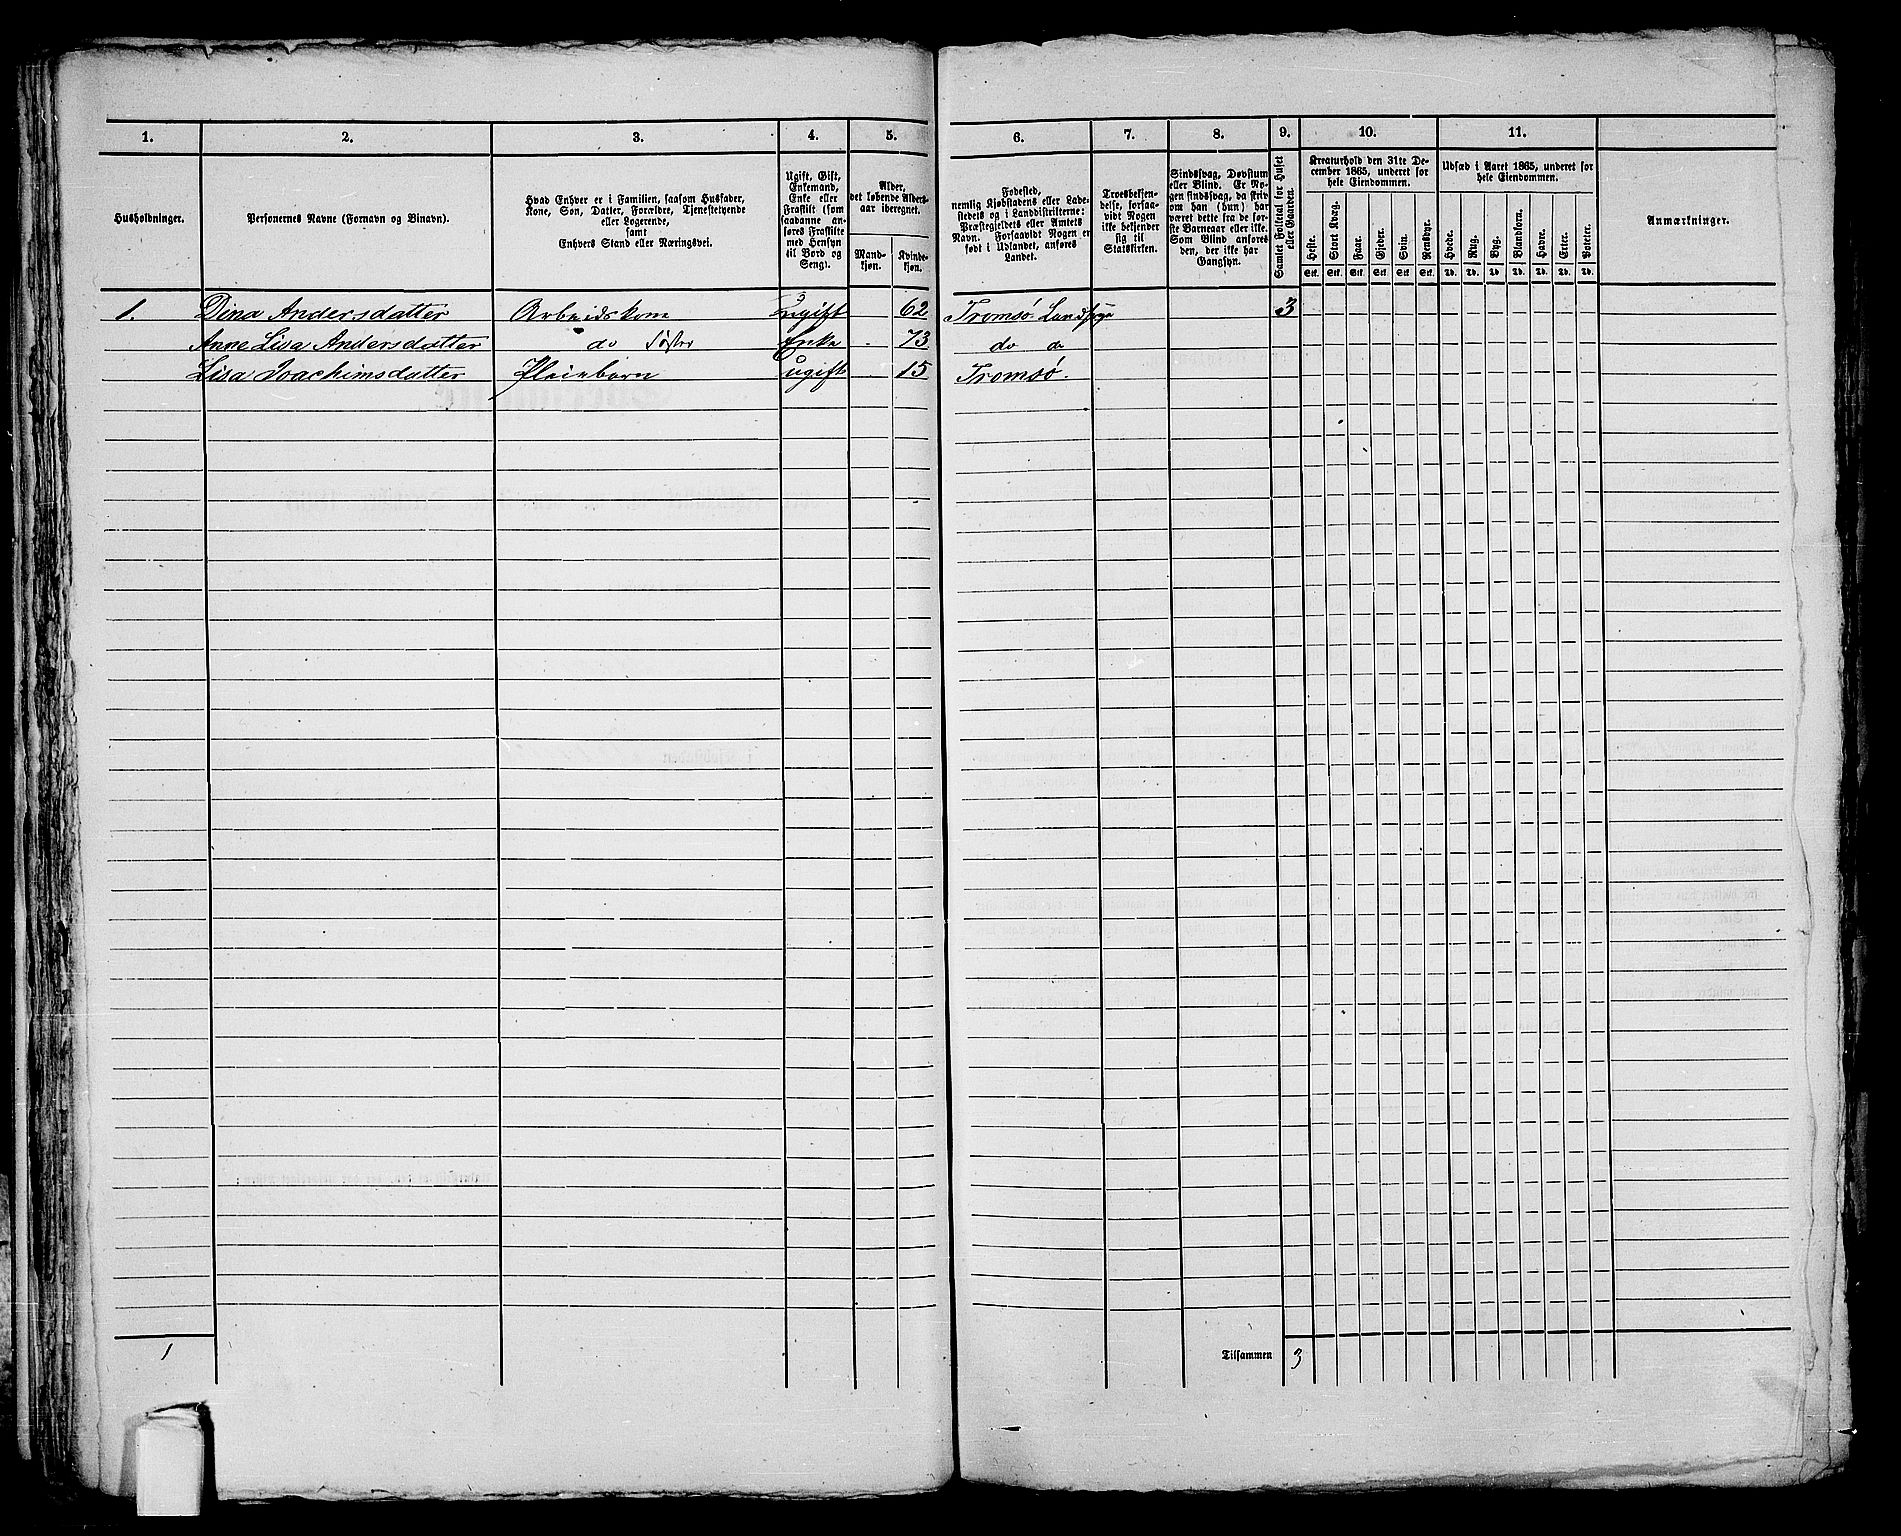 1. 2. 3. 4. 5. 6. 7. 8. 9. 10. 11.
Husholdninger.
Personernes Navne (Fornavn og Binavn).
Hvad Enhver er i Familien, saasom Husfader,
Kone, Søn, Datter, Forældre, Tjenestetyende
eller Logerende,
samt
Enhvers Stand eller Næringsvei.
Ugift, Gift,
Enkemand,
Enke eller
Fraskilt (som
saadanne an-
føres Fraskilte
med Hensyn
til Bord og
Seng).
Alder,
det løbende Alders-
aar iberegnet.
Mand-
kjøn.
Kvinde-
kjøn.
Fødested,
nemlig Kjøbstadens eller Lade-
stedets og i Landdistrikterne:
Præstegjeldets eller Amtets
Navn. Forsaavidt Nogen er
født i Udlandet, anføres
Landet.
Troesbekjen-
delse, forsaa-
vidt Nogen
ikke bekjender
sig til
Statskirken.
Sindssvag, Døvstum
eller Blind. Er No-
gen sindssvag, da skriv
om han (hun) har
været dette fra de før-
ste Barneaar eller ikke.
Som Blind anføres
den, der ikke har
Gangsyn.
Samlet Folketal for Huset
eller Gaarden.
Kreaturhold den 31te De-
cember 1865, underet for
hele Eiendommen.
Heste. Stort Kvæg. Faar. Gjeder. Svin. Rensdyr.
Stk. Stk. Stk. Stk. Stk. Stk.
Udsæd i Aaret 1865, underet for
hele Eiendommen.
Hvede. Rug. Byg. Blandkorn. Havre. Erter. Poteter.
Td. Td. Td. Td. Td. Td. Td.
Anmærkninger.
1. Dina Andersdatter Arbeidskone Ugift 62 Tromsø Landsogn 3
Anne Lisa Andersdatter do Søster Enke 73 do
Lisa Joachimsdatter Pleiebarn ugift 15 Tromsø.
1 Tilsammen 3